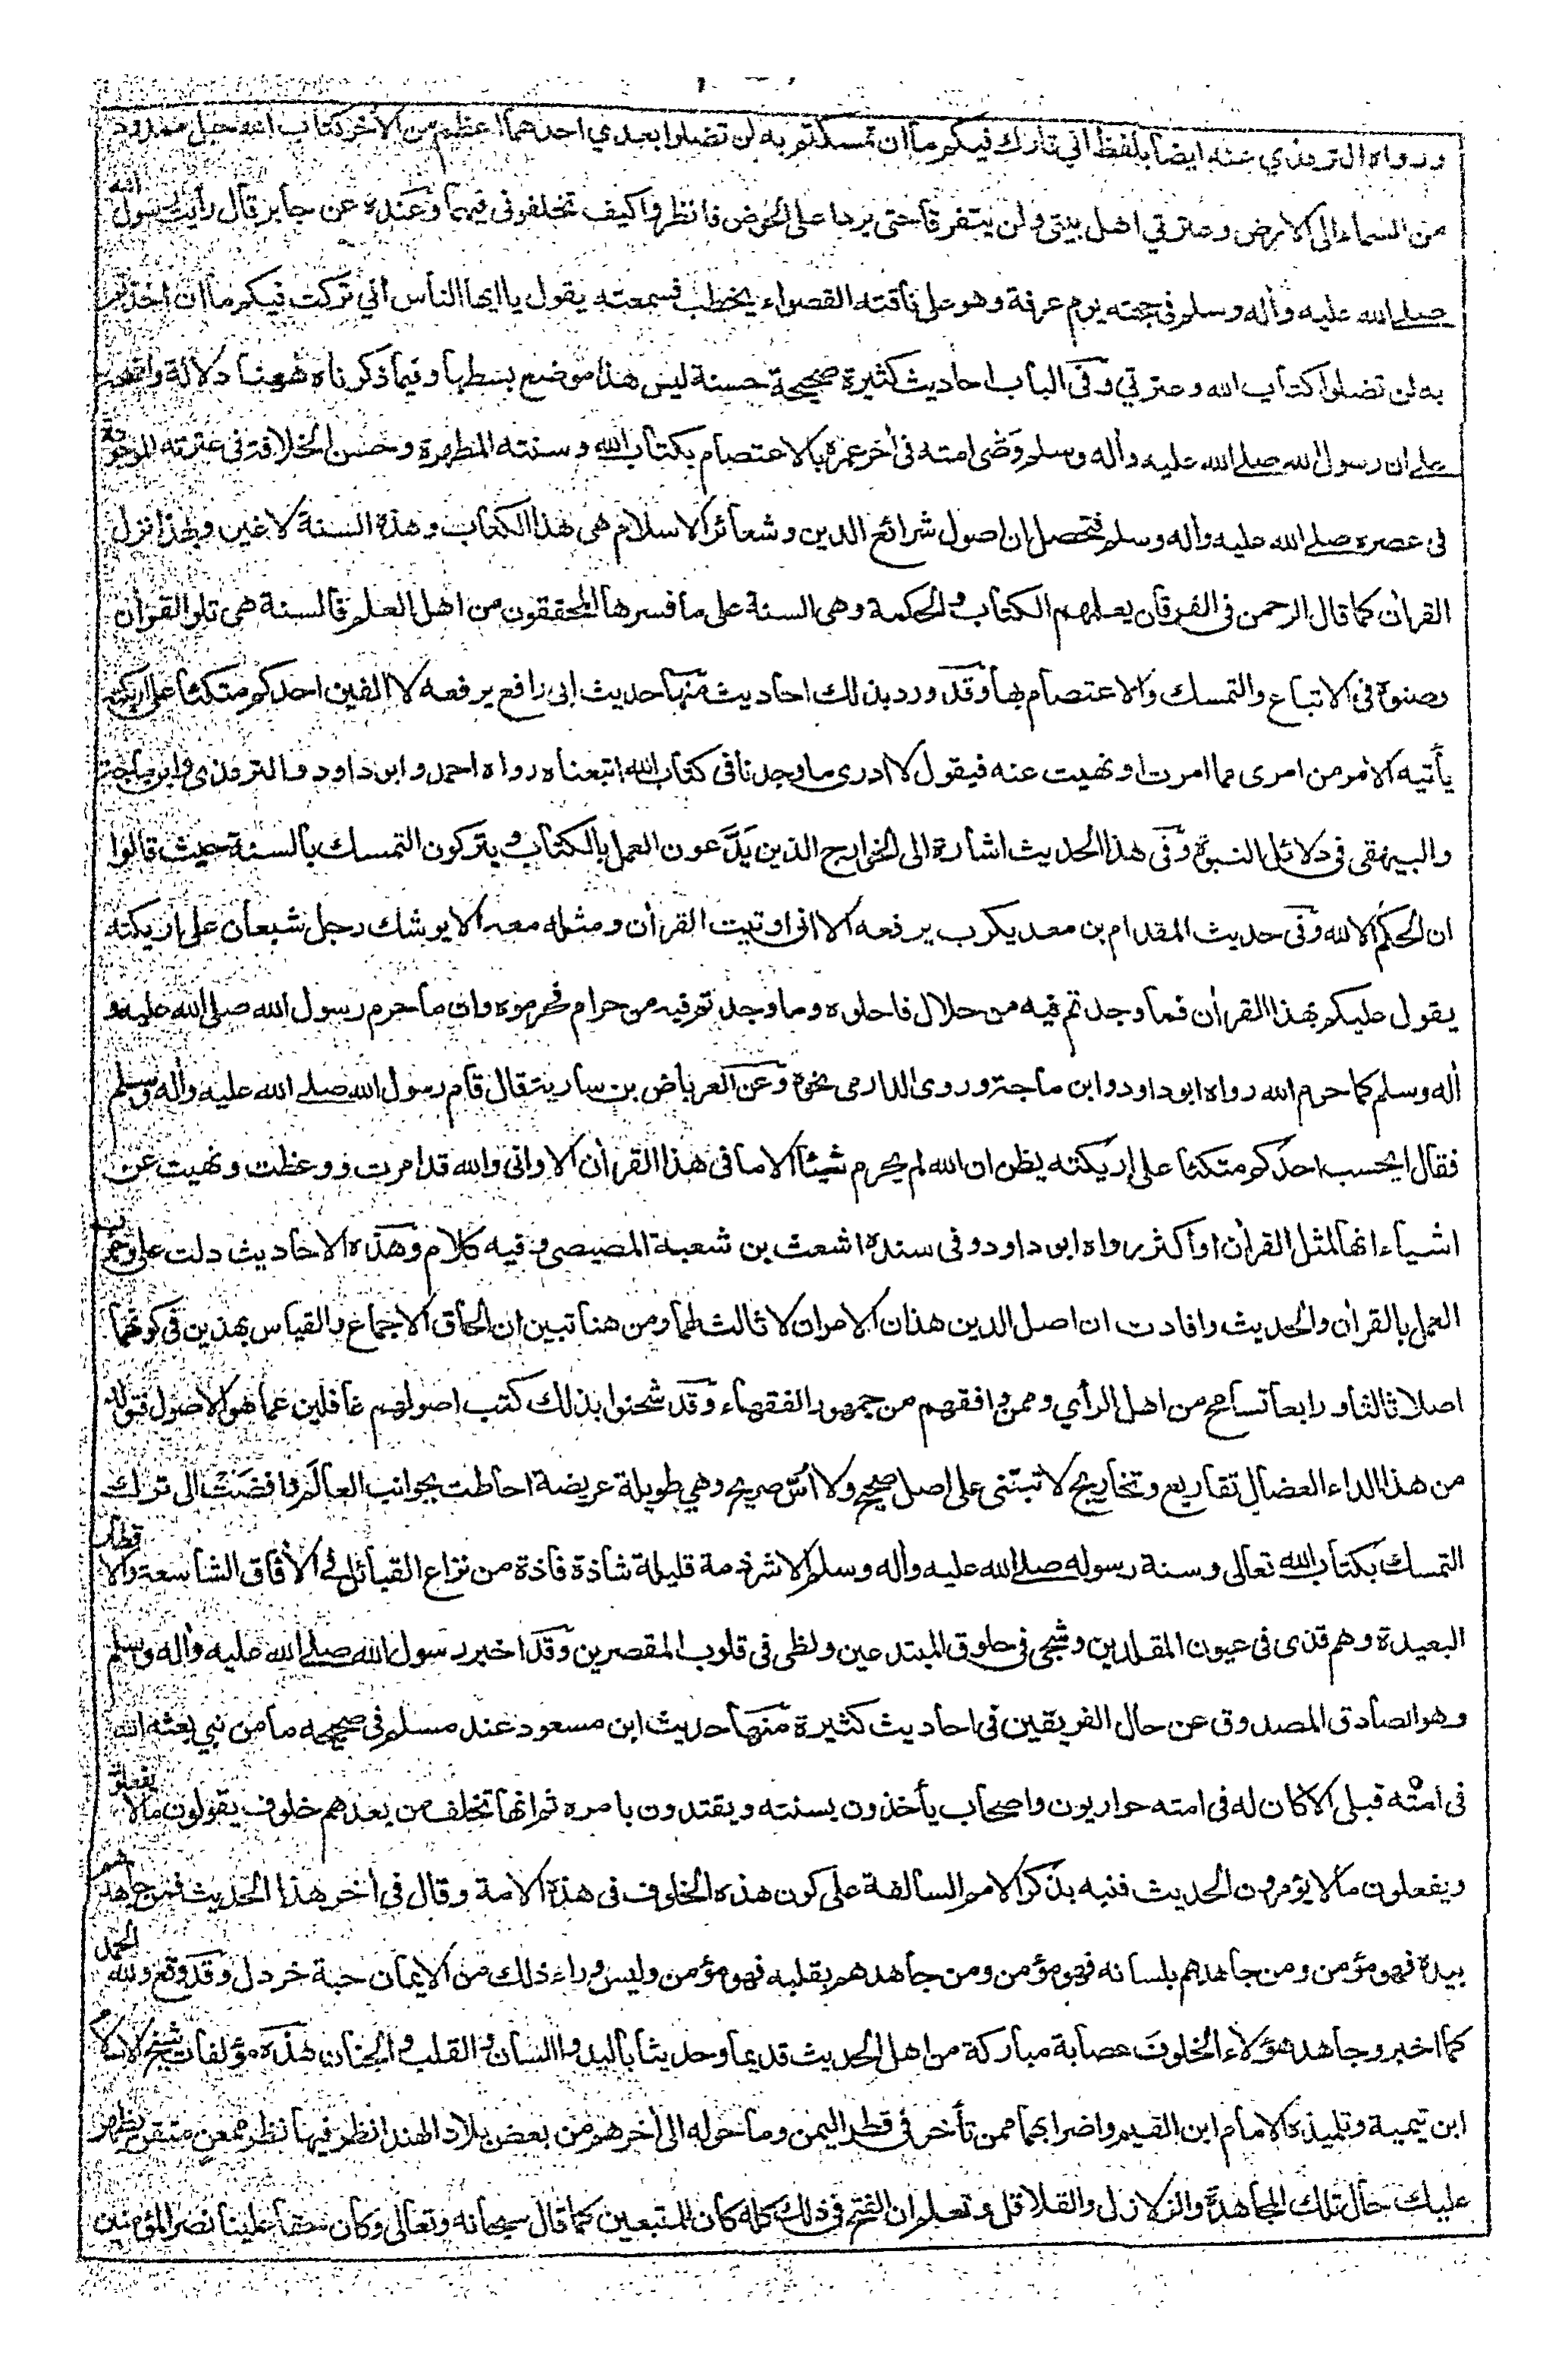 ورواه الترمذي عنه ايضا بلفظ اني تارك فيكم ما ان تمسكتم به لن تضلوا بعدي احدهما اعظم من الآخر كتاب الله حبل ممدود
من السماء الى الارض وعترتي اهل بيتي ولن يتفرقا حتى يردا على الحوض فانظروا كيف تخلفوني فيهما وعنده عن جابر قال رأيت رسول الله
صلى الله عليه وآله وسلم في حجته يوم عرفة وهو على ناقته القصواء يخطب فسمعته يقول يا ايها الناس اني تركت فيكم ما ان اخذتم
به لن تضلوا كتاب الله وعترتي وفي الباب احاديث كثيرة صحيحة حسنة ليس هذا موضع بسطها وفيما ذكرناه ههنا دلالة واضحة
على ان رسول الله صلى الله عليه وآله وسلم وَصَّى امته في آخر عمره بالاعتصام بكتاب الله وسنته المطهرة وحسن الخلافة في عترته الموجودة
في عصره صلى الله عليه وآله وسلم فتحصل ان اصول شرائع الدين وشعائر الاسلام هي هذا الكتاب وهذة السنة لا غير وبهذا نزل
القرآن كما قال الرحمن في الفرقان يعلمهم الكتاب والحكمة وهي السنة على ما فسرها المحققون من اهل العلم فالسنة هي تلو القرآن
وصنوة في الاتباع والتمسك والاعتصام بها وقد ورد بذلك احاديث منها حديث ابي رافع يرفعه لا الفين احدكم متكئا على اريكته
يأتيه الامر من امرى مما امرت او نهيت عنه فيقول لا ادرى ما وجدنا في كتاب الله اتبعناه رواه احمد وابو داود والترمذي وابن ماجة
والبيهقى في دلائل النبوة وفي هذا الحديث اشارة الى الخوارج الذين يَدَّعون العمل بالكتاب ويتركون التمسك بالسنة حيث قالوا
ان الحكم الا لله وفي حديث المقدام بن معديكرب يرفعه الا انى اوتيت القرآن ومثله معه الا يوشك رجل شبعان على اريكته
يقول عليكم بهذا القرآن فما وجدتم فيه من حلال فاحلوه وما وجدتم فيه من حرام فحرموه وان ما حرم رسول الله صلى الله عليه و
آله وسلم كما حرم الله رواه ابو داود وابن ماجة وروى الدارمى نحوه وعن العرباض بن سارية قال قام رسول الله صلى الله عليه وآله وسلم
فقال ايحسب احدكم متكئا على اريكته يظن ان الله لم يحرم شيئا الا ما في هذا القرآن الا وانى والله قد امرت ووعظت ونهيت عن
اشياء انها لمثل القرآن او اكثر رواه ابو داود وفي سنده اشعث بن شعبة المصيصى وفيه كلام وهذه الاحاديث دلت على وجوب
العمل بالقرآن والحديث وافادت ان اصل الدين هذان الامران لا ثالث لهما ومن هنا تبين ان الحاق الاجماع والقياس بهذين في كونهما
اصلا ثالثا و رابعا تسامح من اهل الرأي وممن وافقهم من جمهور الفقهاء وقد شحنوا بذلك كتب اصولهم غافلين عما هو الاصول فتولد
من هذا الداء العضال تفاريع وتخاريج لا تبتنى على اصل صحيح ولا اُسّ صريح وهي طويلة عريضة احاطت بجوانب العالم فافضت الى ترك
التمسك بكتاب الله تعالى وسنة رسوله صلى الله عليه وآله وسلم الا شرذمة قليلة شاذة فاذة من نزاع القبائل في الآفاق الشاسعة والاقطار
البعيدة وهم قذى في عيون المقلدين وشجى في حلوق المبتدعين ولظى في قلوب المقصرين وقد اخبر رسول الله صلى الله عليه وآله وسلم
وهو الصادق المصدوق عن حال الفريقين في احاديث كثيرة منها حديث ابن مسعود عند مسلم في صحيحه ما من نبي بعثه الله
في امته قبلى الا كان له في امته حواريون واصحاب يأخذون بسنته ويقتدون بامره ثم انها تخلف من بعدهم خلوف يقولون ما لا يفعلون
ويفعلون ما لا يؤمرون الحديث فنبه بذكر الامم السالفة على كون هذه الخلوف في هذة الامة وقال في آخر هذا الحديث فمن جاهدهم
بيدة فهو مؤمن ومن جاهدهم بلسانه فهو مؤمن ومن جاهدهم بقلبه فهو مؤمن وليس وراء ذلك من الايمان حبة خردل وقد وقع ولله الحمد
كما اخبر وجاهد هؤلاء الخلوف عصابة مباركة من اهل الحديث قديما وحديثا باليد واللسان والقلب والجنان هذه مؤلفات شيخ الاسلام
ابن تيمية وتلميذه الامام ابن القيم واضرابهما ممن تأخر في قطر اليمن وما حوله الى آخرهم من بعض بلاد الهند انظر فيها نظر ممعن متقن يظهر
عليك حال تلك المجاهدة والزلازل والقلاقل وتعلم ان الفتح في ذلك كله كان للمتبعين كما قال سبحانه وتعالى وكان حقا علينا نصر المؤمنين